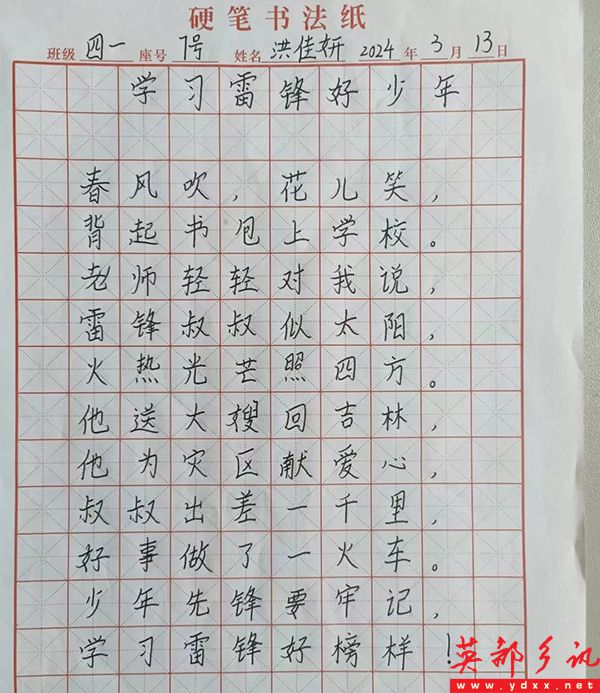 硬笔书法纸
班级 四一 座号 7号 姓名 洪佳妍 2024 年 3 月 13 日
学习雷锋好少年
春风吹，花儿笑，
背起书包上学校。
老师轻轻对我说，
雷锋叔叔似太阳，
火热光芒照四方。
他送大嫂回吉林，
他为灾区献爱心，
叔叔出差一千里，
好事做了一火车。
少年先锋要牢记，
学习雷锋好榜样！
英都乡讯
www.ydxx.net